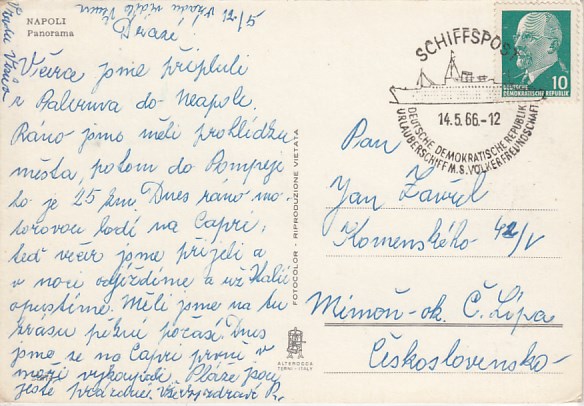 NAPOLI
Panorama
12/5
Drazí!
Včera jsme připluli
z Palerma do Neapole.
Ráno jsme měli prohlídku
města, potom do Pompejí
to je 25 km. Dnes ráno mo-
torovou lodí na Capri,
teď večer jsme přijeli a
v noci odjíždíme a už Italii
opustíme. Měli jsme na tu
krasu pěkné počasí. Dnes
jsme se na Capri prvně v
moři vykoupali. Pláže jsou
ještě prázdné. Všechny zdraví
FOTOCOLOR - RIPRODUZIONE VIETATA
ALTEROCCA
TERNI - ITALY
SCHIFFSPOST
14.5.66.-12
DEUTSCHE DEMOKRATISCHE REPUBLIK
URLAUBERSCHIFF M.S. VÖLKERFREUNDSCHAFT
DEUTSCHE
DEMOKRATISCHE REPUBLIK
10
Pan
Jan Zavřel
Komenského 42/V
Mimoň - ok. Č. Lípa
Československo -